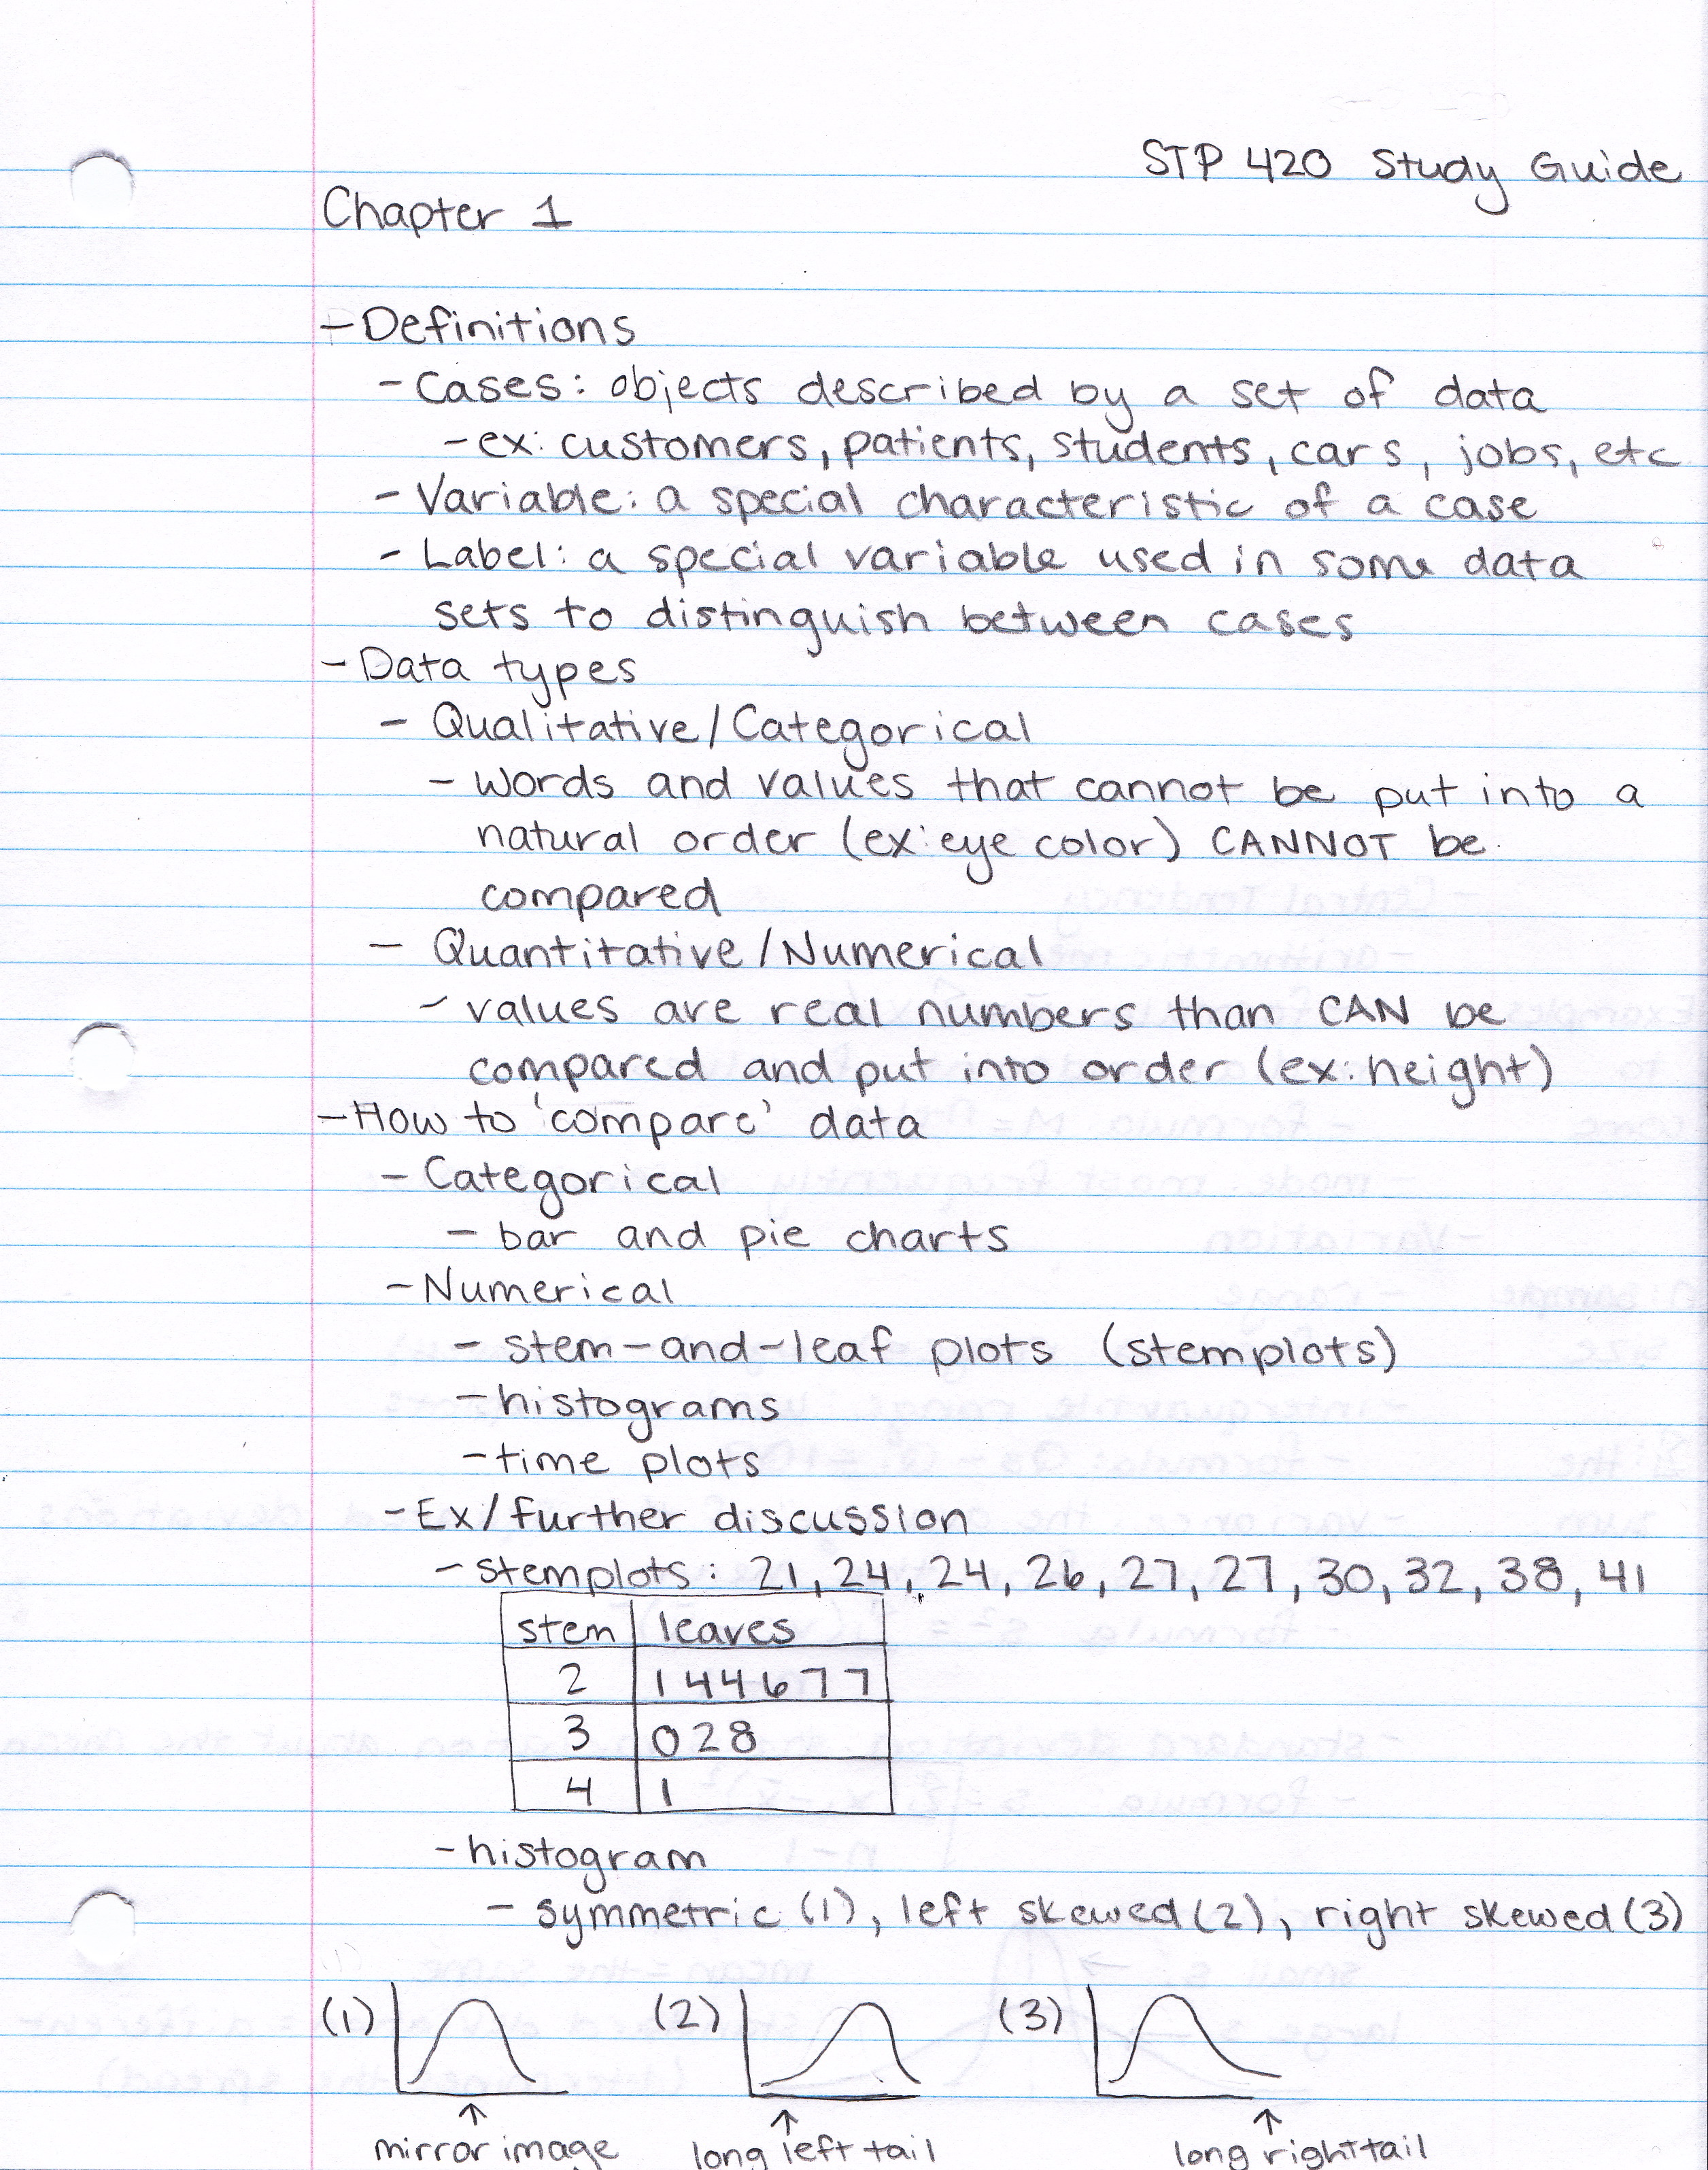 STP 420 Study Guide
Chapter 1
- Definitions
- Cases: objects described by a set of data
- ex: customers, patients, students, cars, jobs, etc
- Variable: a special characteristic of a case
- Label: a special variable used in some data
sets to distinguish between cases
- Data types
- Qualitative/Categorical
- words and values that cannot be put into a
natural order (ex: eye color) CANNOT be
compared
- Quantitative/Numerical
- values are real numbers than CAN be
compared and put into order (ex: height)
- How to 'compare' data
- Categorical
- bar and pie charts
- Numerical
- stem-and-leaf plots (stemplots)
- histograms
- time plots
- Ex/further discussion
- stemplots: 21, 24, 24, 26, 27, 27, 30, 32, 38, 41
stem leaves
2 1 4 4 6 7 7
3 0 2 8
4 1
- histogram
- symmetric (1), left skewed (2), right skewed (3)
(1) (2) (3)
mirror image long left tail long right tail